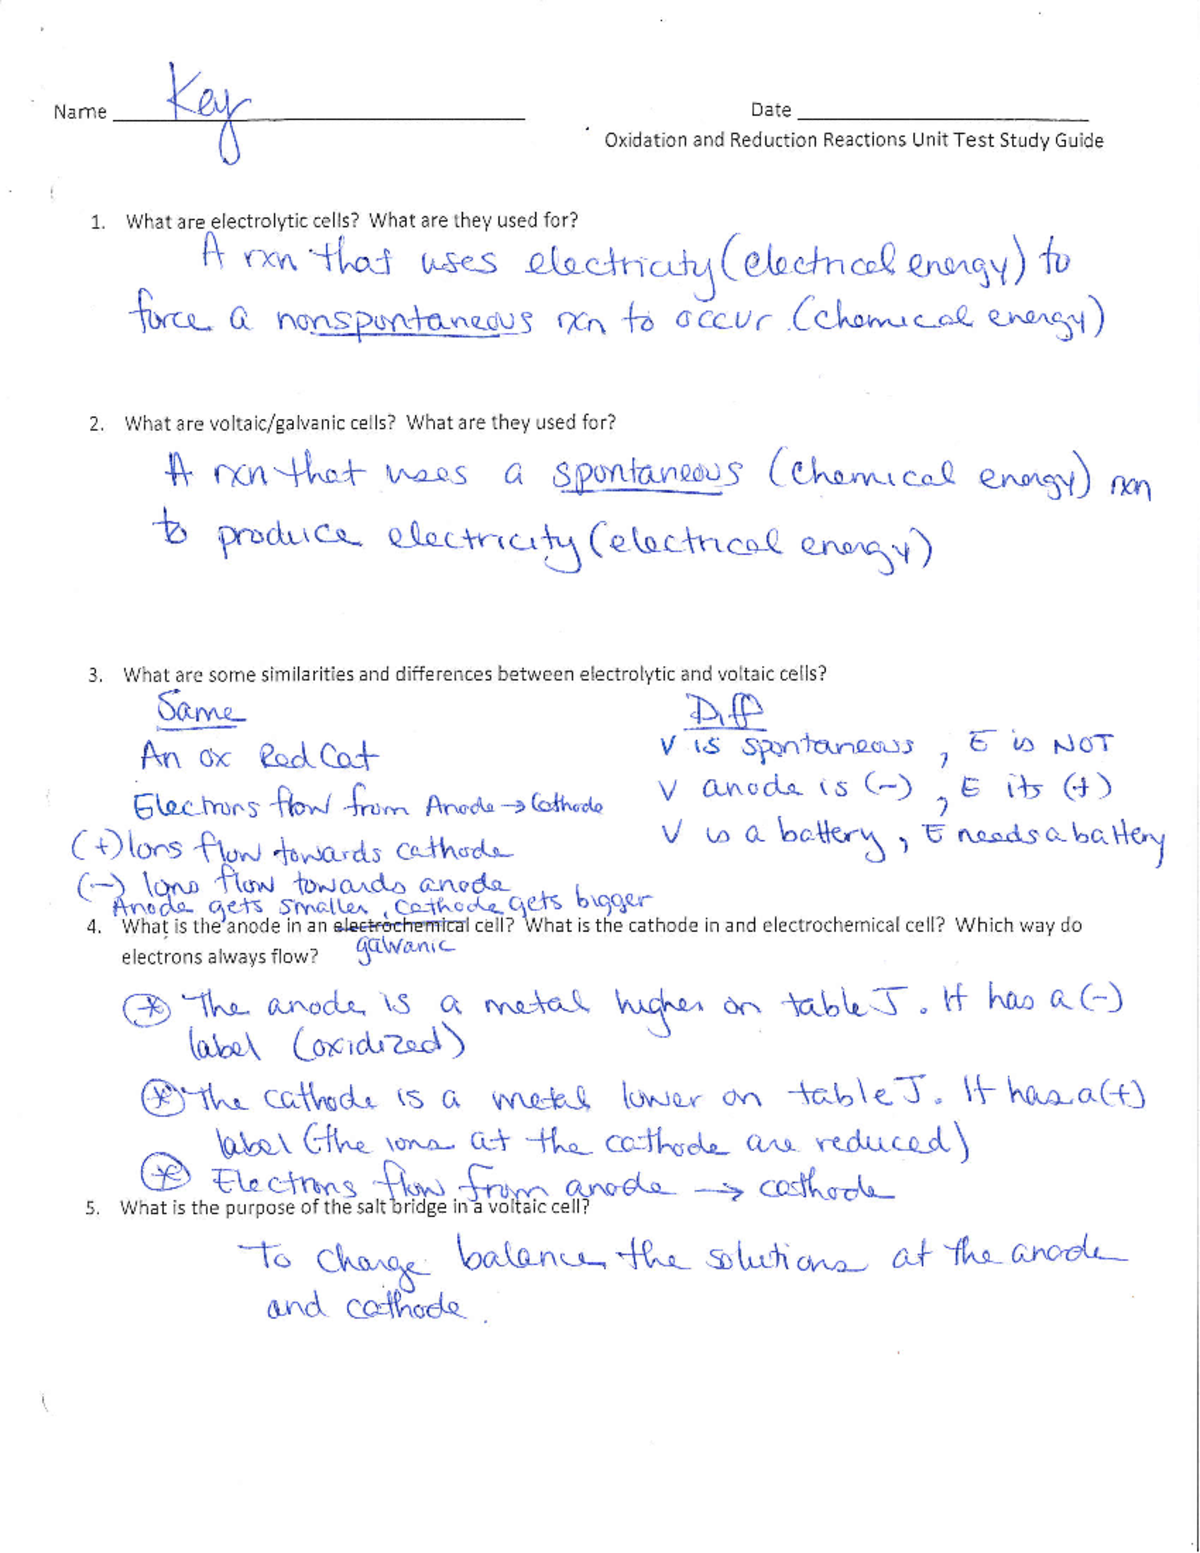 Name Key Date
Oxidation and Reduction Reactions Unit Test Study Guide
1. What are electrolytic cells? What are they used for?
A rxn that uses electricity (electrical energy) to
force a nonspontaneous rxn to occur. (chemical energy)
2. What are voltaic/galvanic cells? What are they used for?
A rxn that uses a spontaneous (chemical energy) rxn
to produce electricity (electrical energy)
3. What are some similarities and differences between electrolytic and voltaic cells?
Same
An ox Red Cat
Electrons flow from Anode → Cathode
(+) Ions flow towards cathode
(-) Ions flow towards anode
Anode gets smaller, cathode gets bigger
Diff
V is spontaneous, E is NOT
V anode is (-), E its (+)
V is a battery, E needs a battery
4. What is the anode in an electrochemical cell? What is the cathode in and electrochemical cell? Which way do
galvanic
electrons always flow?
* The anode is a metal higher on table J. It has a (-)
label (oxidized)
* The cathode is a metal lower on table J. It has a (+)
label (the ions at the cathode are reduced)
* Electrons flow from anode → cathode
5. What is the purpose of the salt bridge in a voltaic cell?
To charge balance the solutions at the anode
and cathode.